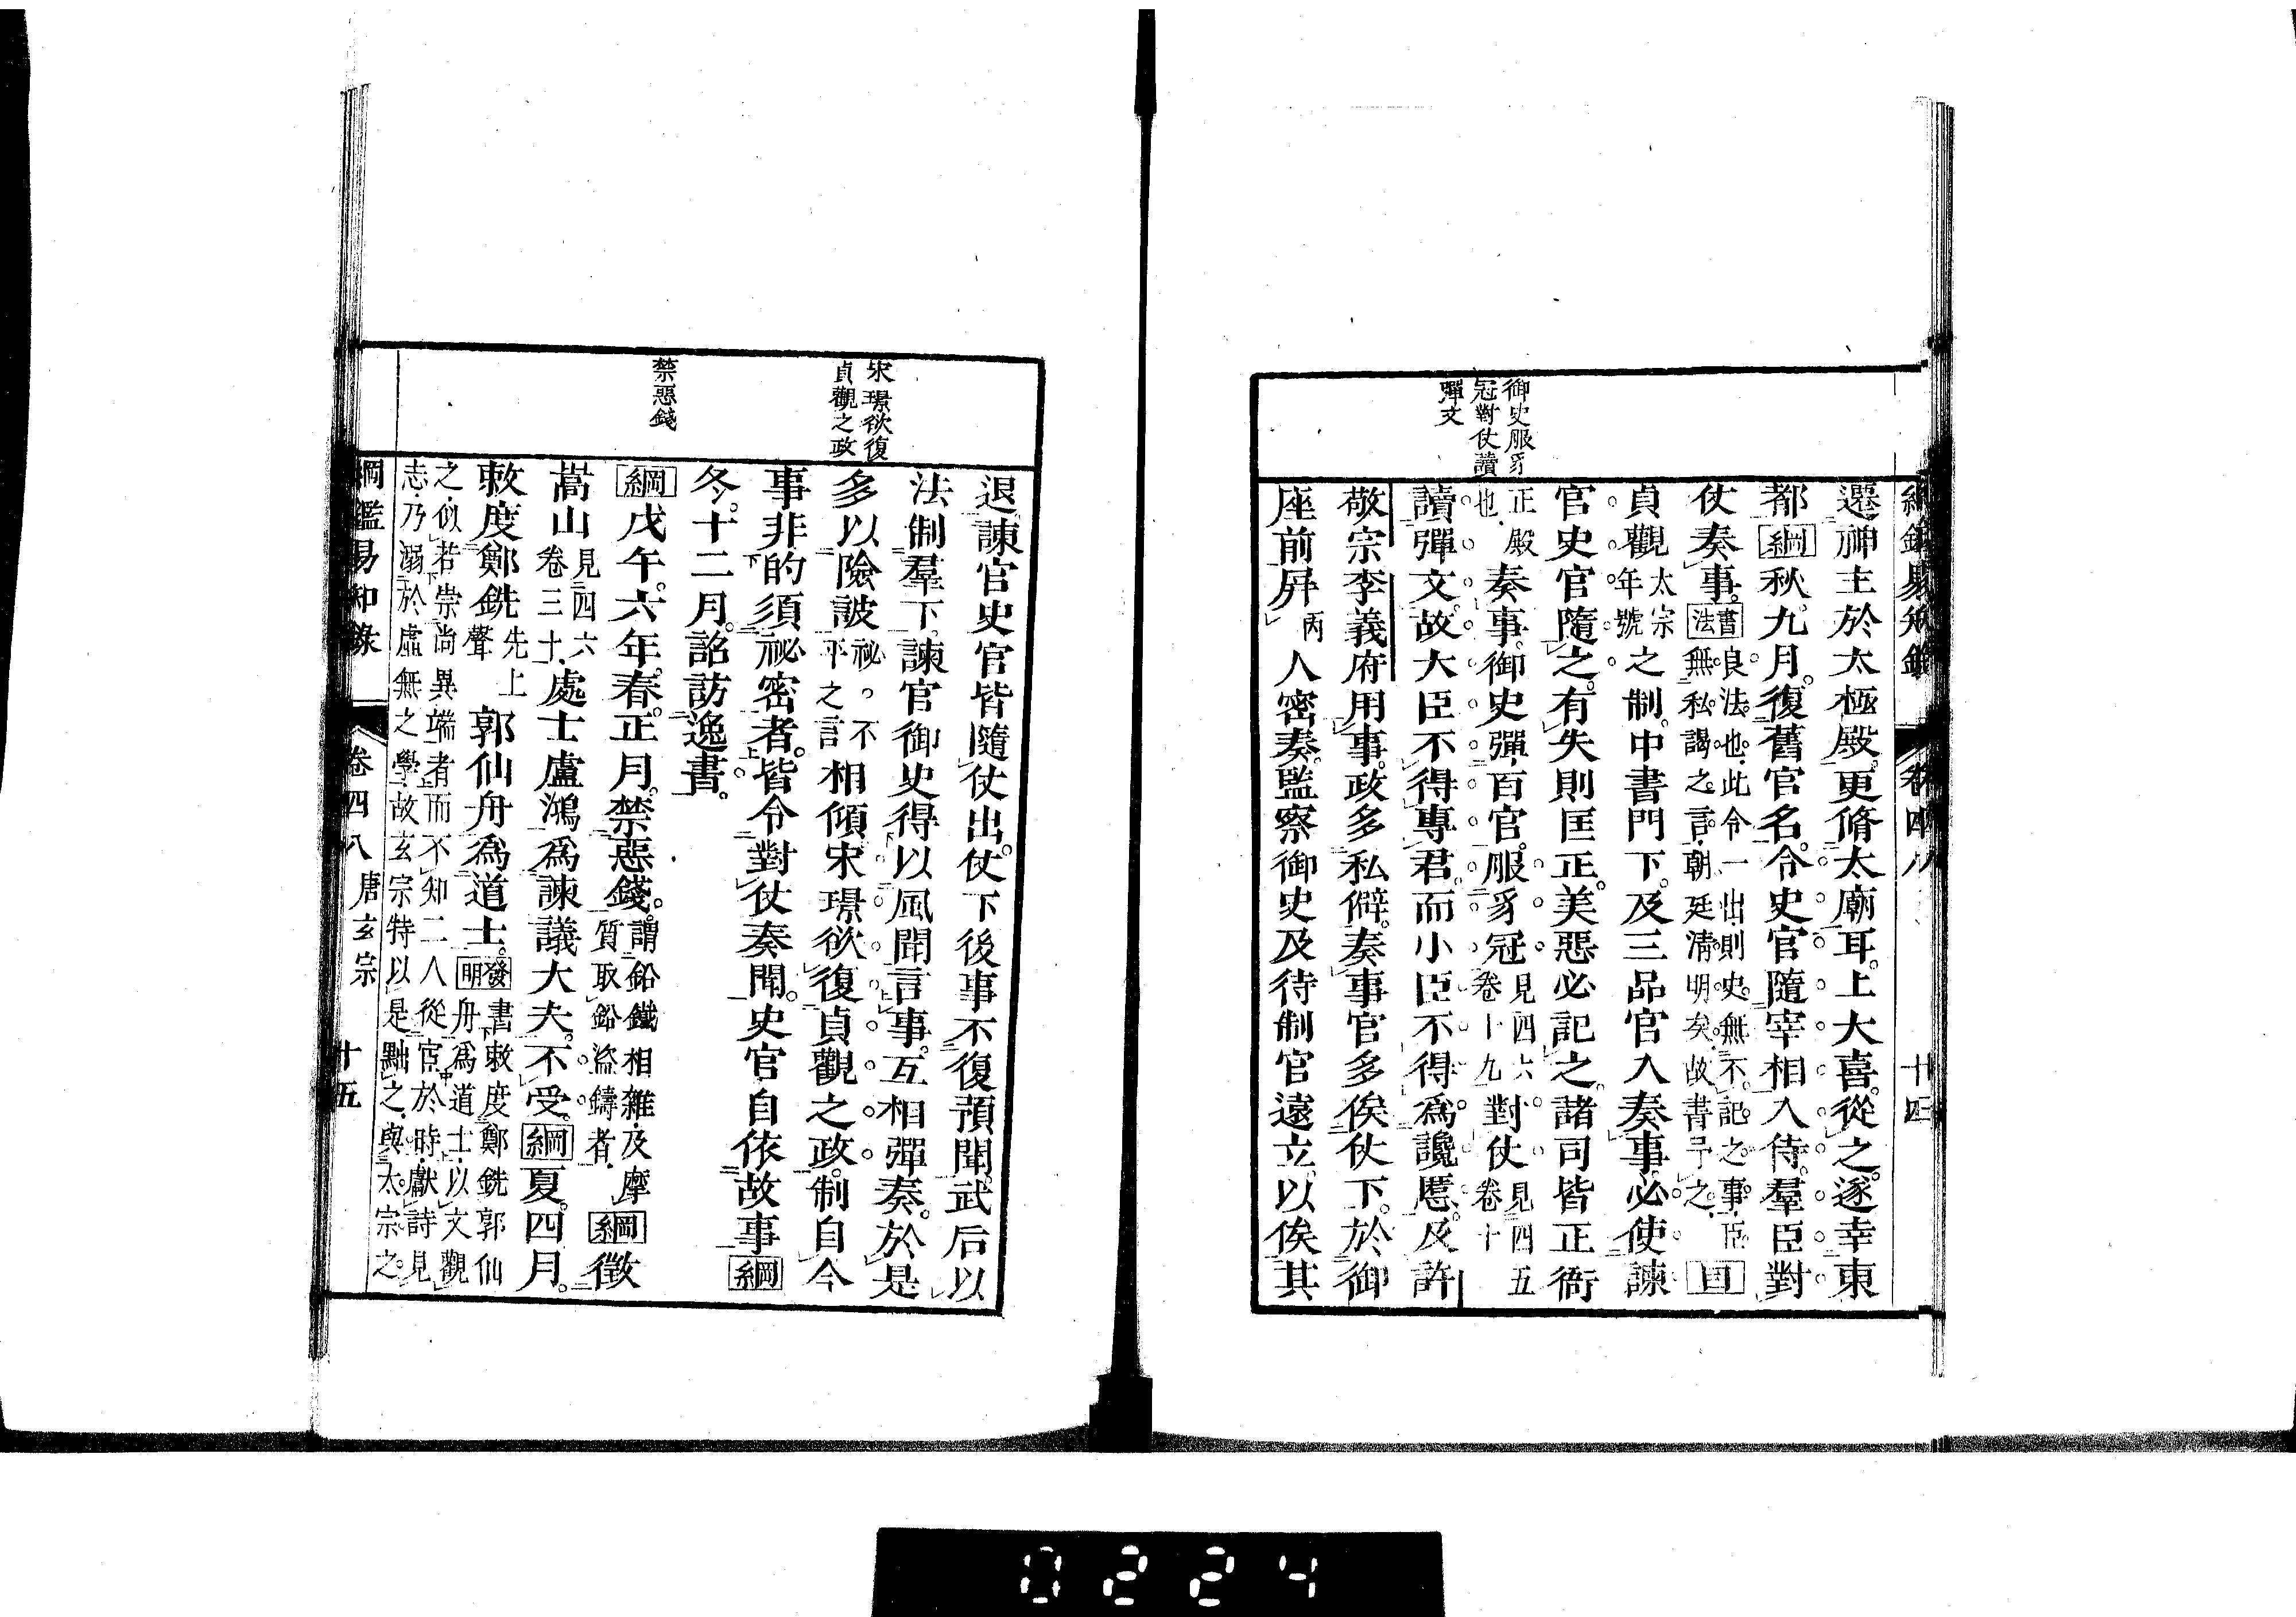 綱鑑易知錄 卷四八 十四
御史服豸
冠對仗讀
彈文
遷神主於太極殿。更脩太廟耳。上大喜。從之。遂幸東
都。綱秋。九月。復舊官名。令史官隨宰相入侍。羣臣對
仗奏事。書法良法也。此令一出。則史無不記之事。臣無私謁之言。朝廷淸明矣。故書予之。目
貞觀太宗年號之制。中書門下。及三品官入奏事。必使諫
官史官隨之。有失則匡正。美惡必記之。諸司皆正衙
正殿也。奏事。御史彈百官。服豸冠見四六卷十九對仗見四五卷十
讀彈文。故大臣不得專君。而小臣不得爲讒慝。及許
敬宗李義府用事。政多私僻。奏事官多俟仗下。於御
座前屛丙人密奏。監察御史及待制官遠立。以俟其
宋璟欲復
貞觀之政
禁惡錢
退。諫官史官皆隨仗出。仗下後事不復預聞。武后以
法制羣下。諫官御史得以風聞言事。互相彈奏。於是
多以險詖祕。不平之言相傾。宋璟欲復貞觀之政。制自今
事非的須祕密者。皆令對仗奏聞。史官自依故事。綱
冬。十二月。詔訪逸書。
綱戊午。六年。春。正月。禁惡錢。謂鉛鐵相雜。及摩質取鉛盜鑄者。綱徵
嵩山見四六卷三十處士盧鴻爲諫議大夫。不受。綱夏。四月。
敕度鄭銑先上聲郭仙舟爲道士。發明書敕度鄭銑郭仙舟爲道士。以文觀
之。似若崇尙異端者。而不知二人從宦於時。獻詩見
志。乃溺於虛無之學。故玄宗特以是黜之。與太宗之
綱鑑易知錄 卷四八 唐玄宗 十五
0224